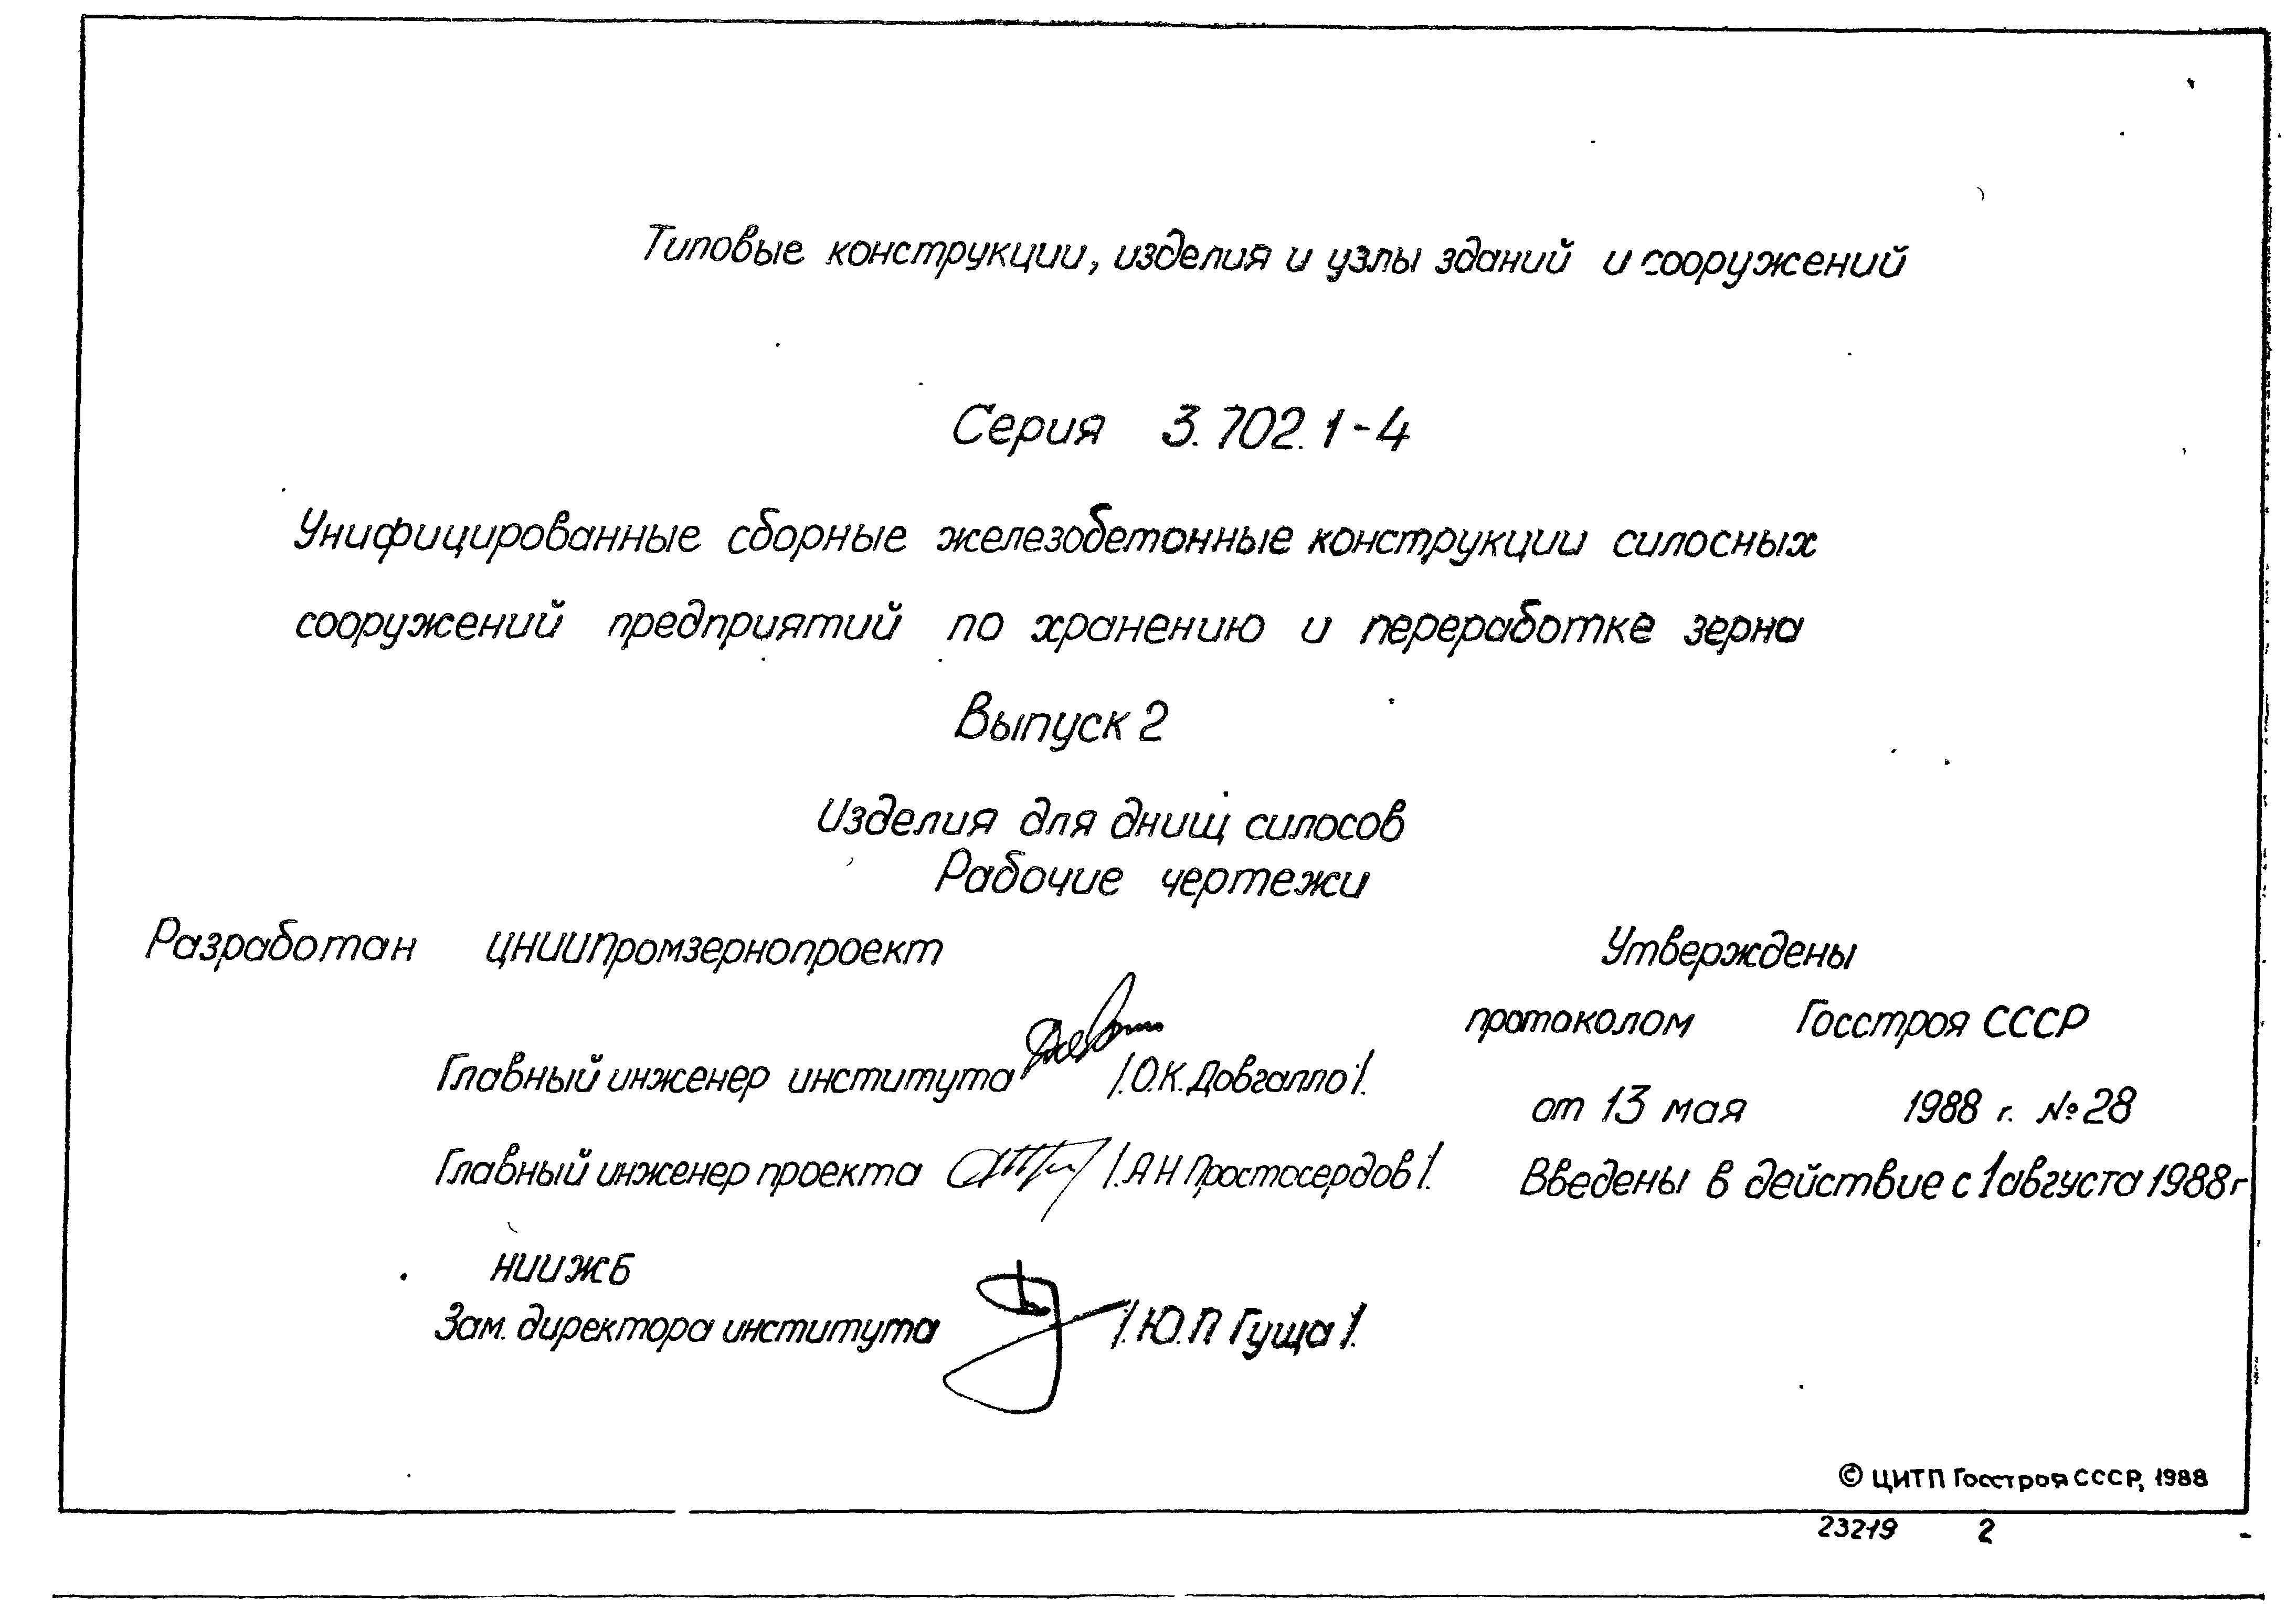 Типовые конструкции, изделия и узлы зданий и сооружений
Серия 3.702.1-4
Унифицированные сборные железобетонные конструкции силосных
сооружений предприятий по хранению и переработке зерна
Выпуск 2
Изделия для днищ силосов
Рабочие чертежи
Разработан ЦНИИПромзернопроект
Главный инженер института /.О.К.Довгалло/.
Главный инженер проекта /.А Н Простосердов/.
НИИЖБ
Зам. директора института /.Ю.П Гуща/.
Утверждены
протоколом Госстроя СССР
от 13 мая 1988 г. №28
Введены в действие с 1 августа 1988 г
© ЦИТП Госстроя СССР, 1988
23219 2